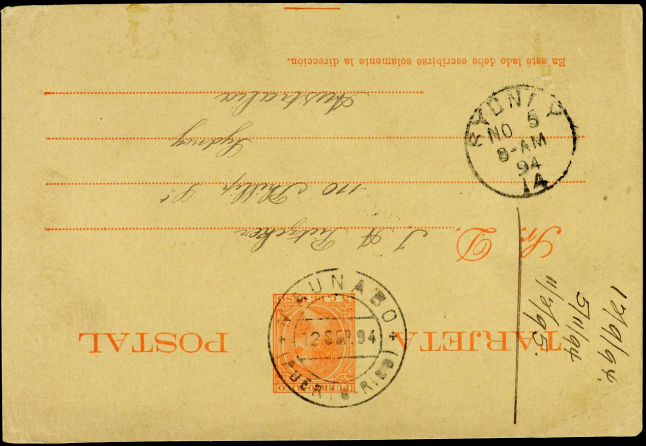 TARJETA POSTAL
PUERTO-RICO
MAUNABO
12 SEP. 94
(PUERTO-RICO)
Sr. D. J. A.
110 Phillip St
Sydney
Australia
En este lado debe escribirse solamente la dirección.
SYDNEY
NO 5
8-AM
94
14
12/9/94.
5/11/94
11/2/95.